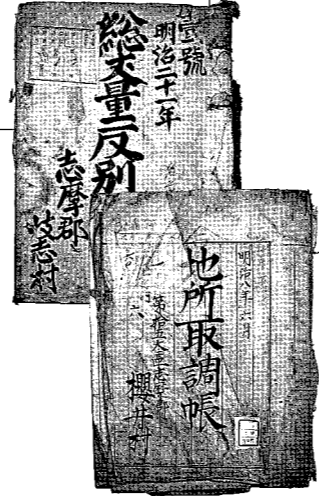 壹號
明治二十一年
総丈量反別
志摩郡
岐志村
明治八年六月
地所取調帳
櫻井村